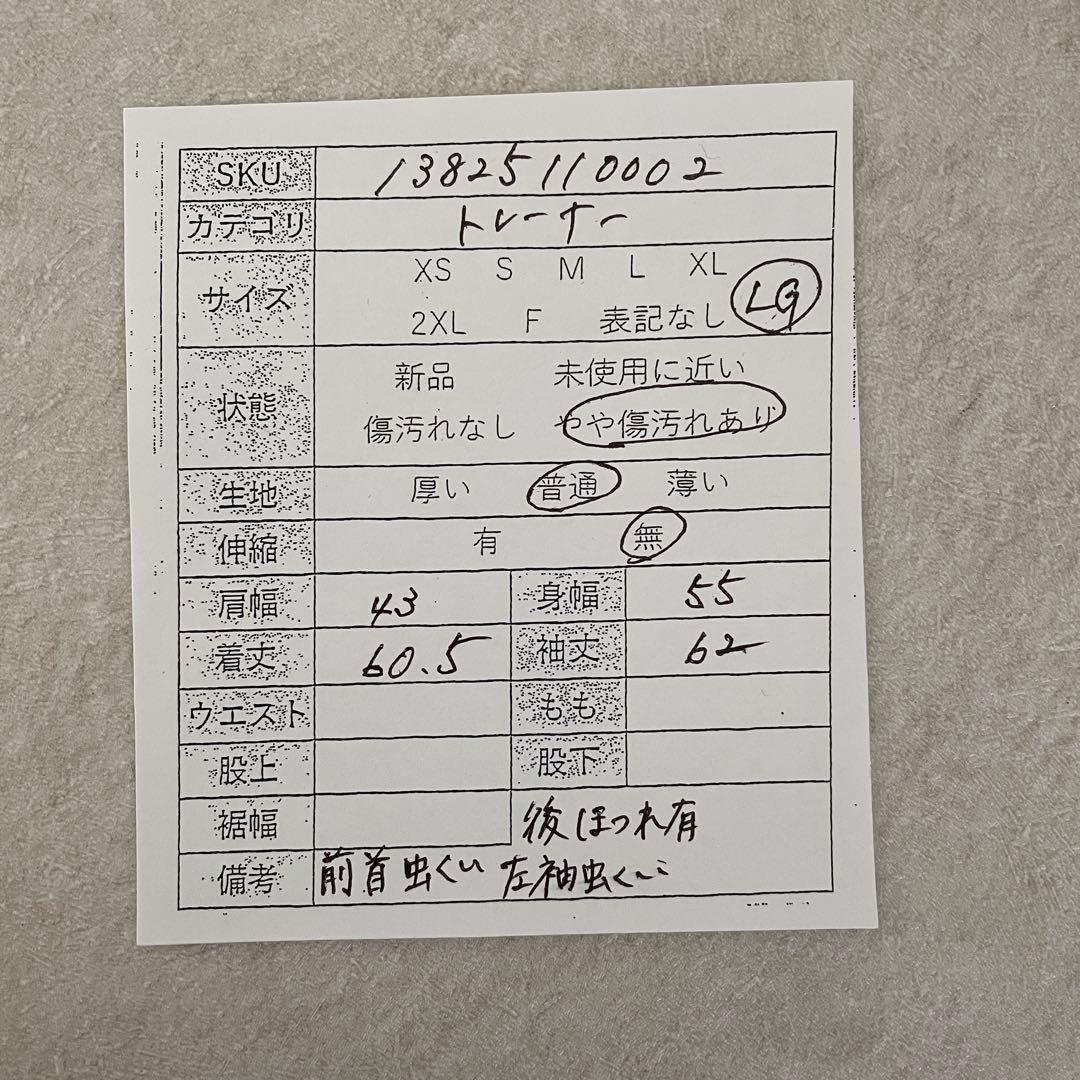 SKU 13825110002
カテゴリ トレーナー
サイズ XS S M L XL
2XL F 表記なし LG
状態 新品 未使用に近い
傷汚れなし やや傷汚れあり
生地 厚い 普通 薄い
伸縮 有 無
肩幅 43 身幅 55
着丈 60.5 袖丈 62
ウエスト もも
股上 股下
裾幅 後ほつれ有
備考 前首虫くい 左袖虫くい